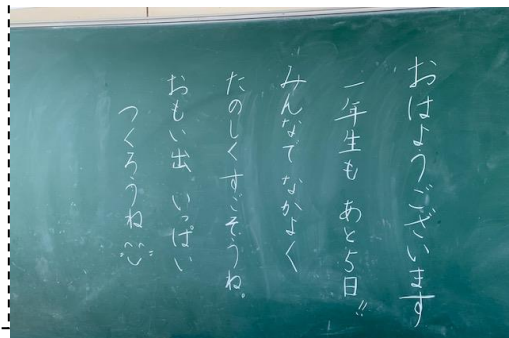 おはようございます
一年生も あと5日!!
みんなでなかよく
たのしくすごそうね。
おもい出 いっぱい
つくろうね